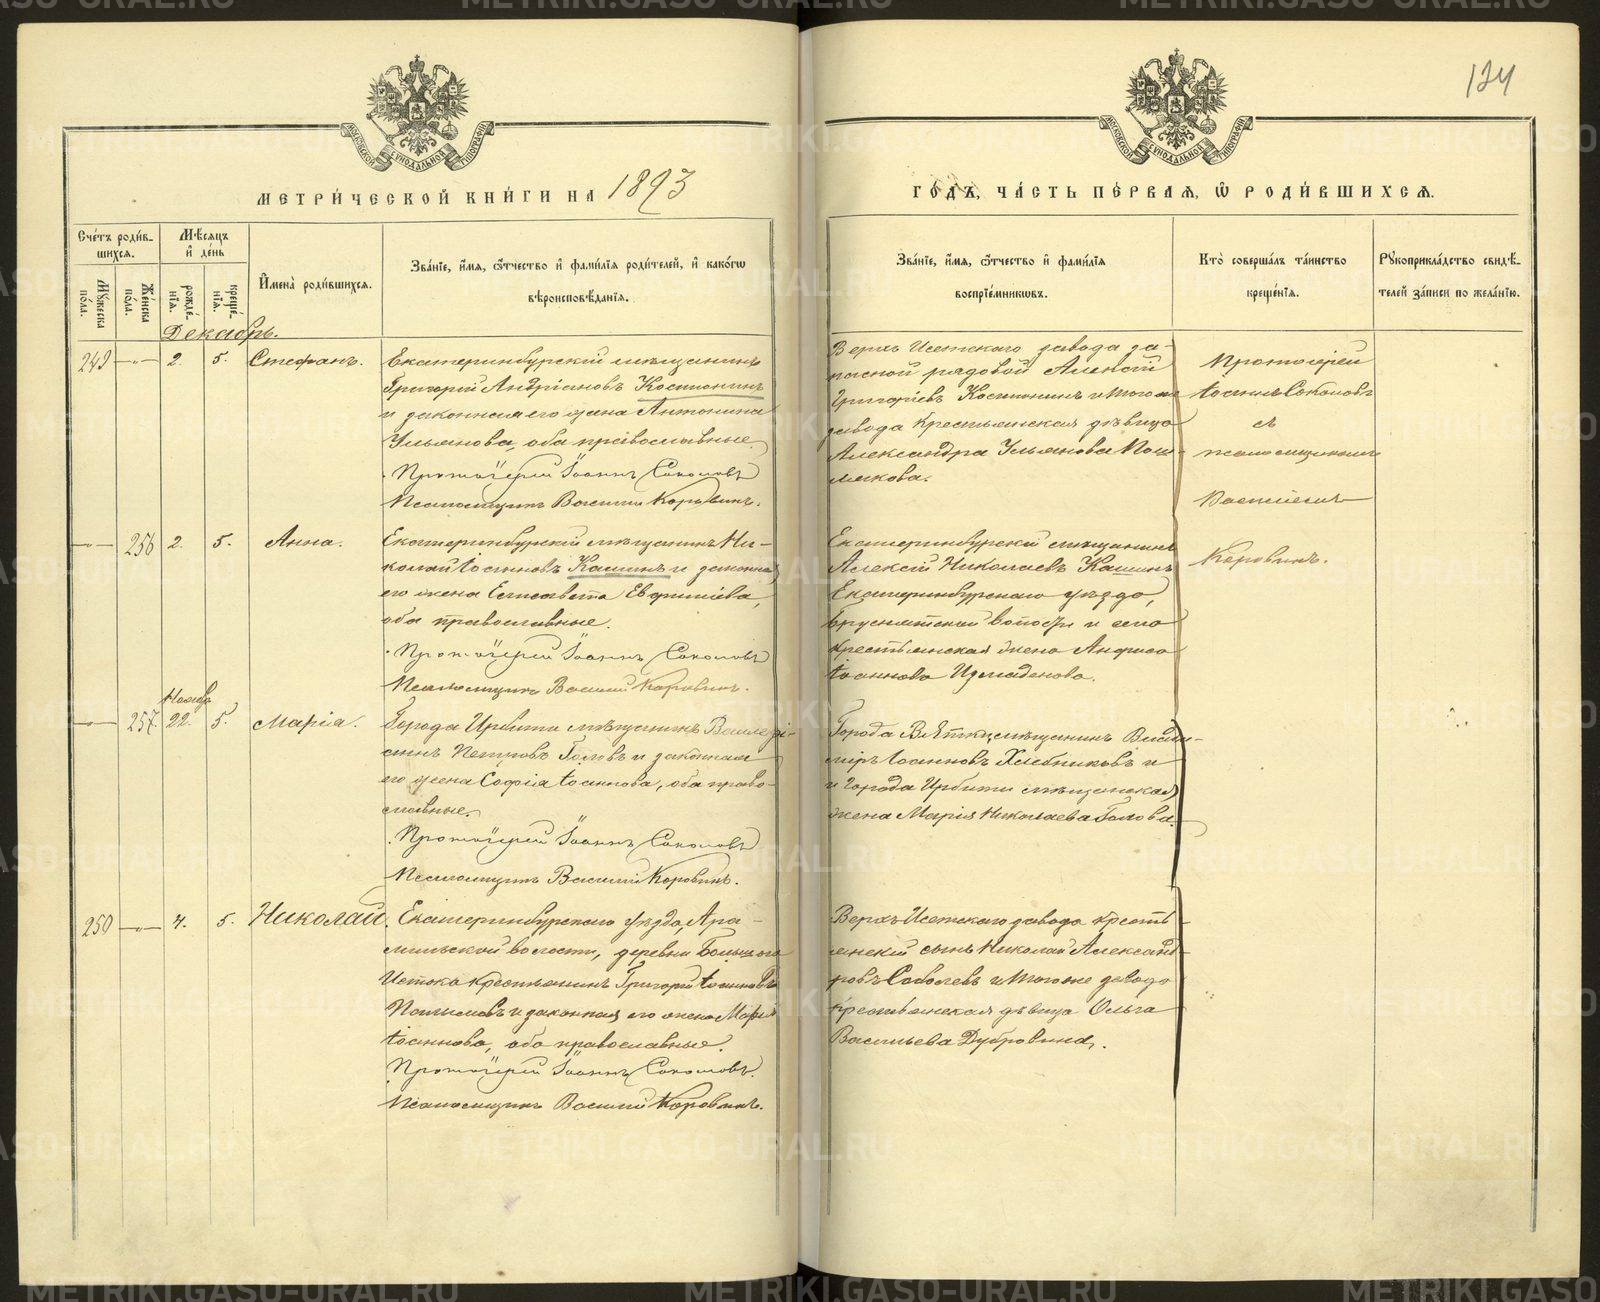 134
МОСКОВСКОЙ СѴНОДАЛЬНОЙ ТИПОГРАФІИ
МОСКОВСКОЙ СѴНОДАЛЬНОЙ ТИПОГРАФІИ
МЕТРИ́ЧЕСКОЙ КНИ́ГИ НА 1893
ГО́ДЪ, ЧА́СТЬ ПЕ́РВАЯ, Ѡ РОДИ́ВШИХСЯ.
Сче́тъ роди́в-
шихся.
Мꙋ́жеска по́ла.
Же́нска по́ла.
Мѣ́сяцъ и҆ де́нь
рожде́-нїя.
креще́-нїя.
И҆мена̀ роди́вшихся.
Зва́нїе, и҆́мя, ѻ҆́тчество и҆ фами́лїя роди́телей, и҆ како́гѡ
вѣроисповѣ́данїя.
Зва́нїе, и҆́мя, ѻ҆́тчество и҆ фами́лїя
воспрїе́мникѡвъ.
Кто̀ соверша́лъ та́инство
креще́нїя.
Рꙋкоприкла́дство свидѣ́-
телей за́писи по жела́нїю.
Декабрь.
249 —"— 2. 5. Стефанъ.
Екатеринбургскій мѣщанинъ
Григорій Андріановъ Костюнинъ
и законная его жена Антонина
Ульянова, оба православные
Протоіерей Іоаннъ Соколовъ
Псаломщикъ Василій Коровинъ.
Верхъ Исетскаго завода за-
пасной рядовой Алексій
Григоріевъ Костюнинъ и тогоже
завода крестьянская дѣвица
Александра Ульянова Кош-
макова.
Протоіерей
Іоаннъ Соколовъ
съ
псаломщикомъ
Василіемъ
Коровинъ.
—"— 256 2. 5. Анна.
Екатеринбургскій мѣщанинъ Ни-
колай Іоанновъ Кашинъ и законная
его жена Елисавета Евфиміева,
оба православные.
Протоіерей Іоаннъ Соколовъ
Псаломщикъ Василій Коровинъ.
Екатеринбургскій мѣщанинъ
Алексій Николаевъ Кашинъ
Екатеринбургскаго уѣзда,
Бруснятской волости и села
крестьянская жена Анфиса
Іоаннова Измоденова.
Ноября
—"— 257. 22. 5. Марія.
Города Ирбити мѣщанинъ
Петровъ Головъ и законная
его жена Софія Іоаннова, оба право-
славные.
Протоіерей Іоаннъ Соколовъ
Псаломщикъ Василій Коровинъ.
Города Вятки мѣщанинъ Влади-
міръ Іоанновъ Хлебниковъ и
и города Ирбити мѣщанская
жена Марія Николаева Голова.
250 —"— 4. 5. Николай.
Екатеринбургскаго уѣзда, Ара-
мильской волости, деревни Большого
Истока крестьянинъ Григорій Іоанновъ
Патымовъ и законная его жена Марія
Іоаннова, оба православные.
Протоіерей Іоаннъ Соколовъ.
Псаломщикъ Василій Коровинъ.
Верхъ Исетскаго завода кресть-
янскій сынъ Николай Александ-
ровъ Соболевъ и тогоже завода
крестьянская дѣвица Ольга
Васильева Дубровина.
METRIKI.GASO-URAL.RU